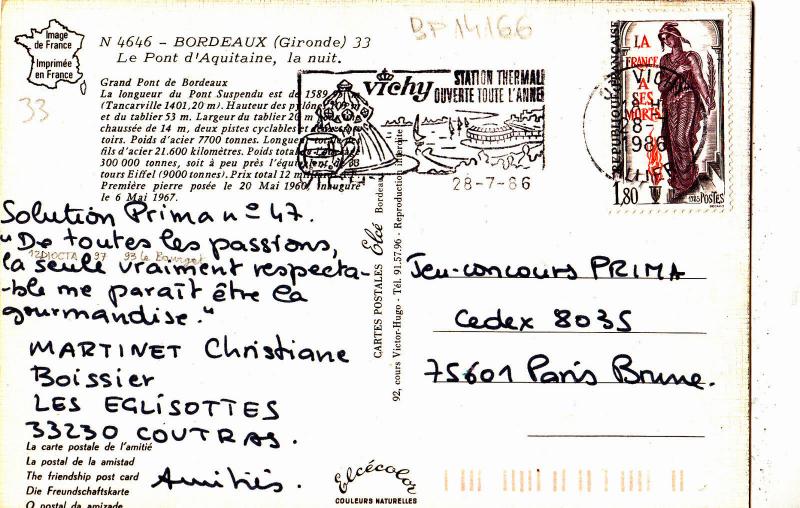 Image
de France
Imprimée
en France
BP 14166
N 4646 – BORDEAUX (Gironde) 33
Le Pont d'Aquitaine, la nuit.
33
Grand Pont de Bordeaux
La longueur du Pont Suspendu est de 1589
(Tancarville 1401,20 m). Hauteur des pylônes
et du tablier 53 m. Largeur du tablier 20 m
chaussée de 14 m, deux pistes cyclables et
toirs. Poids d'acier 7700 tonnes. Longueur
fils d'acier 21.600 kilomètres. Poids total
300 000 tonnes, soit à peu près l'équivalent de 33
tours Eiffel (9000 tonnes). Prix total 12
Première pierre posée le 20 Mai 1960. Inauguré
le 6 Mai 1967.
vichy
STATION THERMALE
OUVERTE TOUTE L'ANNEE
28-7-86
VICHY
18H
28-7
1986
ALLIER
LA
FRANCE
A
SES
MORTS
REPUBLIQUE FRANÇAISE
1,80
1985
POSTES
Solution Prima n° 47.
"De toutes les passions,
la seule vraiment respecta-
-ble me paraît être la
gourmandise."
12D10CTA 97 93 le Bourget
MARTINET Christiane
Boissier
LES EGLISOTTES
33230 COUTRAS.
Amitiés.
CARTES POSTALES Elcé Bordeaux
92, cours Victor-Hugo - Tél. 91.57.96 - Reproduction interdite
Jeu-concours PRIMA
Cedex 8035
75601 Paris Brune.
La carte postale de l'amitié
La postal de la amistad
The friendship post card
Die Freundschaftskarte
O postal da amizade
Elcécolor
COULEURS NATURELLES